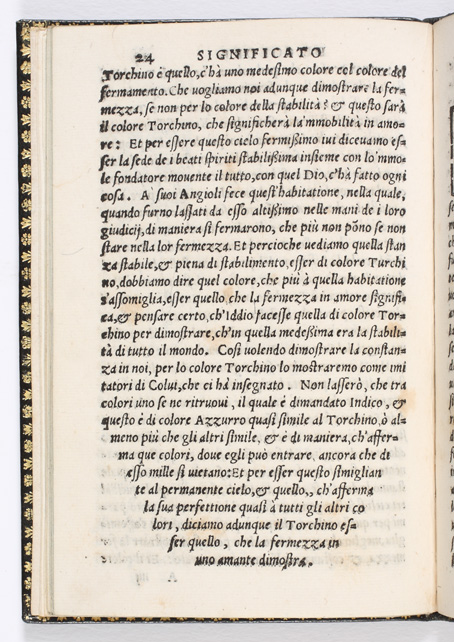 24 SIGNIFICATO
Torchino è quello, c'hà uno medesimo colore col colore del
fermamento. Che uogliamo noi adunque dimostrare la fer=
mezza, se non per lo colore della stabilità? & questo sarà
il colore Torchino, che significherà la'mmobilità in amo=
re: Et per essere questo cielo fermißimo iui diceuamo es=
ser la sede de i beati spiriti stabilißima insieme con lo'mmo=
le fondatore mouente il tutto, con quel Dio, c'hà fatto ogni
cosa. A suoi Angioli fece quest'habitatione, nella quale,
quando furno lassati da esso altißimo nelle mani de i loro
giudicij, di maniera si fermarono, che più non põno se non
stare nella lor fermezza. Et percioche uediamo quella stan
za stabile, & piena di stabilimento, esser di colore Turchi
no, dobbiamo dire quel colore, che più à quella habitatione
s'assomiglia, esser quello, che la fermezza in amore signifi=
ca, & pensare certo, ch'Iddio facesse quella di colore Tor=
chino per dimostrare, ch'in quella medeßima era la stabili=
tà di tutto il mondo. Così uolendo dimostrare la constan=
za in noi, per lo colore Torchino lo mostraremo come imi
tatori di Colui, che ci hà insegnato. Non lasserò, che tra
colori uno se ne ritruoui, il quale è dimandato Indico, &
questo è di colore Azzurro quasi simile al Torchino, ò al=
meno più che gli altri simile, & è di maniera, ch'affer=
ma que colori, doue egli può entrare, ancora che di
esso mille si uietano: Et per esser questo simiglian
te al permanente cielo, & quello,, ch'afferma
la sua perfettione quasi à tutti gli altri co
lori, diciamo adunque il Torchino es=
ser quello, che la fermezza in
uno amante dimostra.